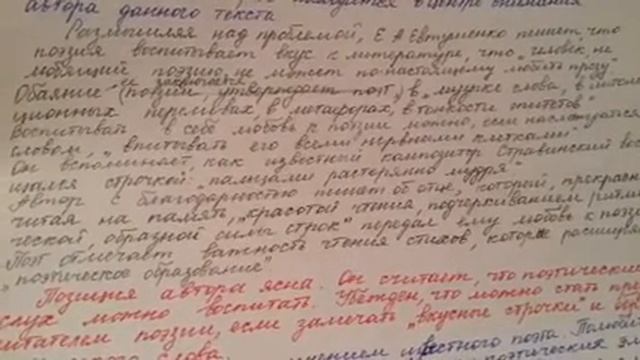 находится в центре внимания
автора данного текста
Размышляя над проблемой, Е. А Евтушенко пишет, что
поэзия воспитывает вкус к литературе, что „человек, не
любящий поэзию, не может по-настоящему любить прозу"
Обаяние (поэзии, утверждает поэт,) в „музыке слова, в интона
ционных переливах, в метафорах, в тонкости эпитетов"
Воспитывать в себе любовь к поэзии можно, если наслаждаться
словом, „впитывать его всеми нервными клетками".
Он вспоминает, как известный композитор Стравинский вос
щался строчкой: „пальцами растерянно мудря"
Автор с благодарностью пишет об отце, который, прекрасно
читая на память, „красотой чтения, подчеркиванием ритми
ческой, образной силы строк" передал ему любовь к поэзи
Поэт отмечает важность чтения стихов, которые расширя
„поэтическое образование".
Позиция автора ясна. Он считает, что поэтический
слух можно воспитать. Убежден, что можно стать
читателем поэзии, если замечать „вкусные строчки" и
слова.
мнением известного поэта.